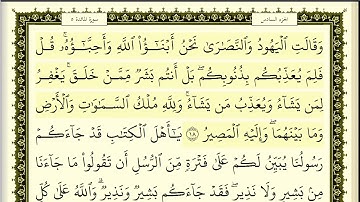 الجزء السادس سورة المائدة ٥
وَقَالَتِ ٱلْيَهُودُ وَٱلنَّصَٰرَىٰ نَحْنُ أَبْنَٰٓؤُا۟ ٱللَّهِ وَأَحِبَّٰٓؤُهُۥ ۚ قُلْ
فَلِمَ يُعَذِّبُكُم بِذُنُوبِكُم ۖ بَلْ أَنتُم بَشَرٌ مِّمَّنْ خَلَقَ ۚ يَغْفِرُ
لِمَن يَشَآءُ وَيُعَذِّبُ مَن يَشَآءُ ۚ وَلِلَّهِ مُلْكُ ٱلسَّمَٰوَٰتِ وَٱلْأَرْضِ
وَمَا بَيْنَهُمَا ۖ وَإِلَيْهِ ٱلْمَصِيرُ ١٨ يَٰٓأَهْلَ ٱلْكِتَٰبِ قَدْ جَآءَكُمْ
رَسُولُنَا يُبَيِّنُ لَكُمْ عَلَىٰ فَتْرَةٍ مِّنَ ٱلرُّسُلِ أَن تَقُولُوا۟ مَا جَآءَنَا
مِنۢ بَشِيرٍ وَلَا نَذِيرٍ ۖ فَقَدْ جَآءَكُم بَشِيرٌ وَنَذِيرٌ ۗ وَٱللَّهُ عَلَىٰ كُلِّ